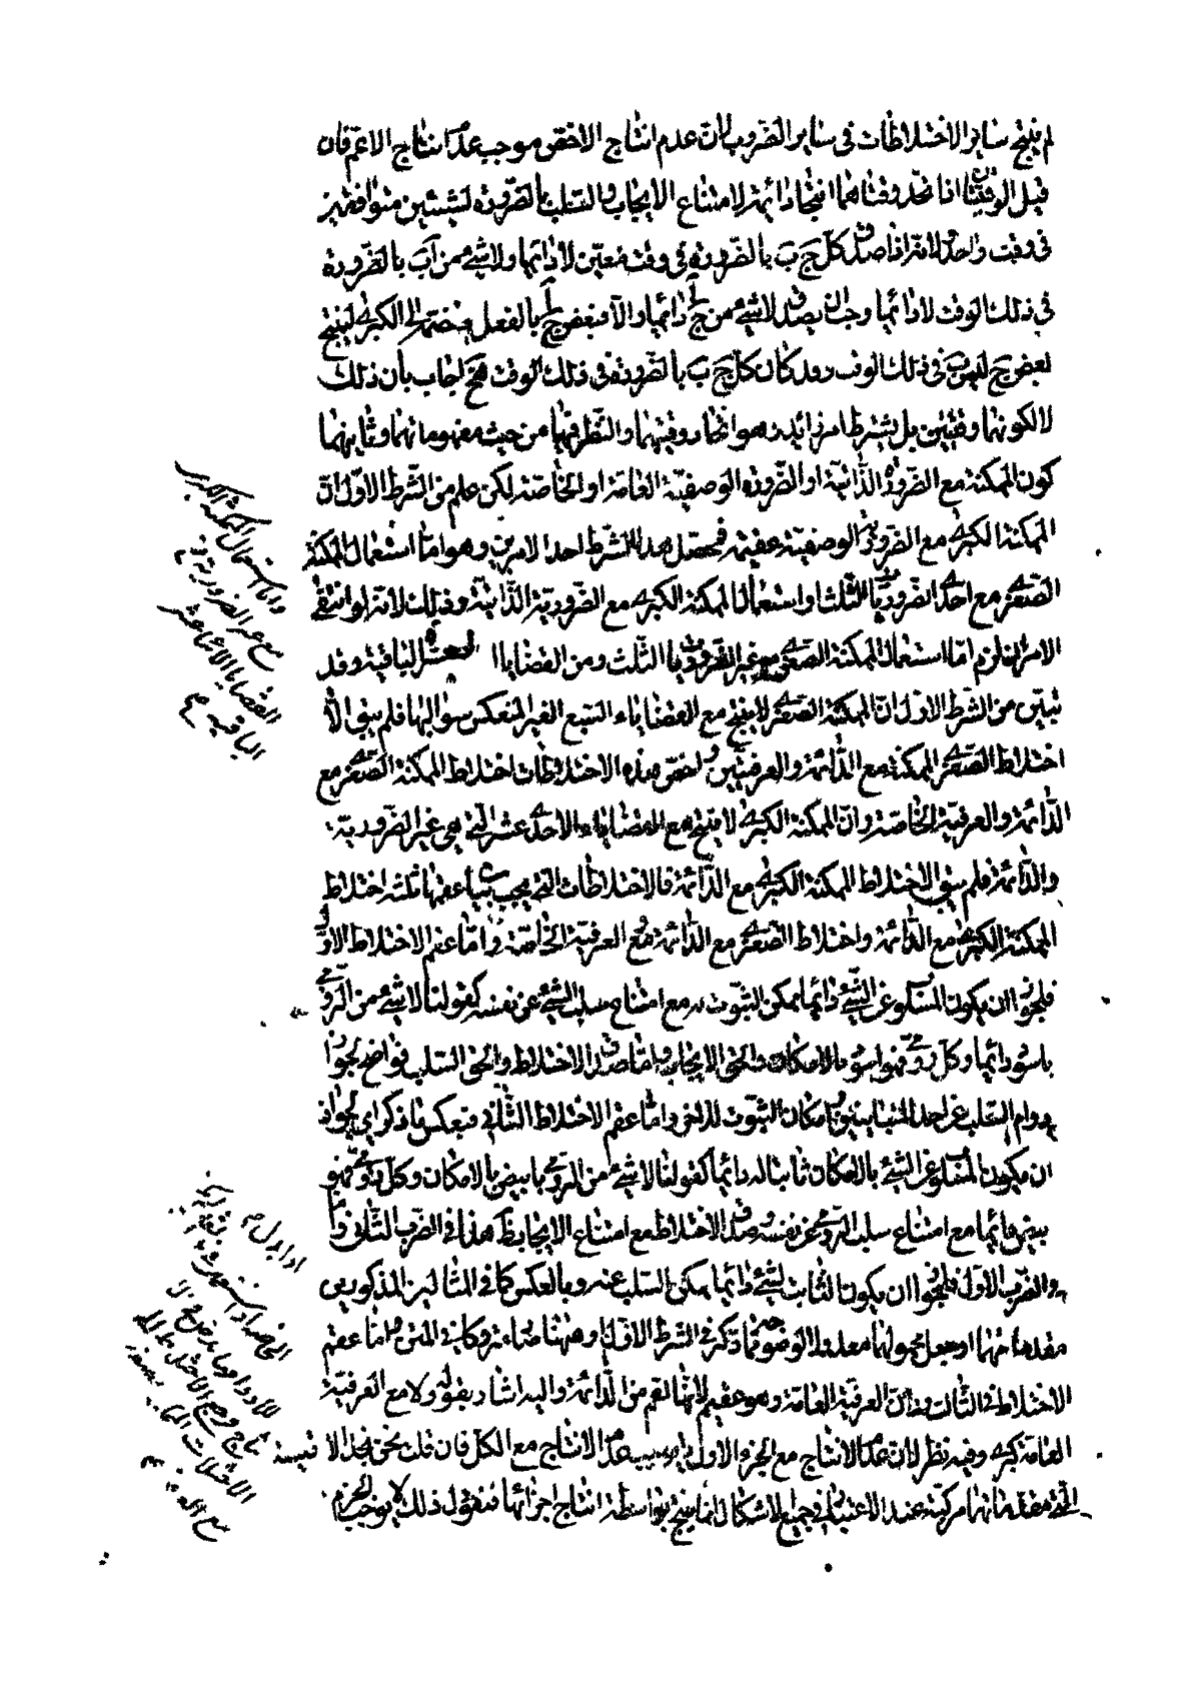 لم ينتج سائر الاختلاطات فى سائر الضروب لان عدم انتاج الاخص موجب عدم انتاج الاعم فان
قيل الوقتيتان اذا اتحد وقتاهما انتجتا دائمة لامتناع الايجاب والسلب بالضرورة لشيئين متوافقين
فى وقت واحد لانه اذا صدق كل ج ب بالضرورة فى وقت معين لا دائما ولا شئ من آ ب بالضرورة
فى ذلك الوقت لا دائما وجب ان يصدق لا شئ من ج آ دائما والا فبعض ج آ بالفعل يضم الى الكبرى لينتج
بعض ج ليس ب فى ذلك الوقت وقد كان كل ج ب بالضرورة فى ذلك الوقت هف اجاب بان ذلك
لا لكونهما وقتيتين بل بشرط امر زائد وهو اتحاد وقتيهما والنظر فيهما من حيث مفهوماتهما وثانيهما
كون الممكنة مع الضرورة الذاتية او الضرورة الوصفية العامة او الخاصة لكن علم من الشرط الاول ان
الممكنة الكبرى مع الضرورة الوصفية عقيمة فمحصل هذا الشرط احد الامرين وهو اما استعمال الممكنة
الصغرى مع احدى الضروريات الثلث او استعمال الممكنة الكبرى مع الضرورية الذاتية وذلك لانه لو انتفى
الامران لزم اما استعمال الممكنة الصغرى مع غير الضروريات الثلث ومن القضايا العشر الباقية وقد
تبين من الشرط الاول ان الممكنة الصغرى لا ينتج مع القضايا السبع الغير المنعكس سوالبها فلم يبق الا
اختلاط الصغرى الممكنة مع الدائمة والعرفيتين واخص هذه الاختلاطات اختلاط الممكنة الصغرى مع
الدائمة والعرفية الخاصة وان الممكنة الكبرى لا ينتج مع القضايا الاحدى عشر التى هى غير الضرورية
والدائمة فلم يبق الا اختلاط الممكنة الكبرى مع الدائمة فالاختلاطات التى يجب بيان عقمها ثلثة اختلاط
الممكنة الكبرى مع الدائمة واختلاط الصغرى مع الدائمة ومع العرفية الخاصة واما عقم الاختلاط الاول
فلجواز ان يكون المسلوب عن الشئ دائما ممكن الثبوت له مع امتناع سلب الشئ عن نفسه كقولنا لا شئ من الرومى
باسود دائما وكل رومى فهو اسود بالامكان والحق الايجاب واما صدق الاختلاط والحق السلب فواضح لجواز
دوام السلب عن احد المتباينين وامكان الثبوت للاخر واما عقم الاختلاط الثانى فبعكس ما ذكر اى لجواز
ان يكون المسلوب عن الشئ بالامكان ثابتا له دائما كقولنا لا شئ من الرومى بابيض بالامكان وكل رومى فهو
ابيض دائما مع امتناع سلب الرومى عن نفسه وصدق الاختلاط مع امتناع الايجاب ظ هذا فى الضرب الثانى واما
الضرب الاول فلجواز ان يكون الثابت لشئ دائما ممكن السلب عنه وبالعكس كما فى المثالين المذكورين
الاختلاط الثالث فلان العرفية العامة وهو عقيم لانها اعم من الدائمة واليه اشار بقوله ولا مع العرفية
العامة كبرى وفيه نظر لان عدم الانتاج مع الجزء الاول لا يوجب عدم الانتاج مع الكل فان قلت نحن نجد الاقيسة
التى مقدماتها مركبة عند الاعتبار فى جميع الاشكال انما ينتج بواسطة انتاج اجزائها فنقول ذلك لا يوجب الجزم